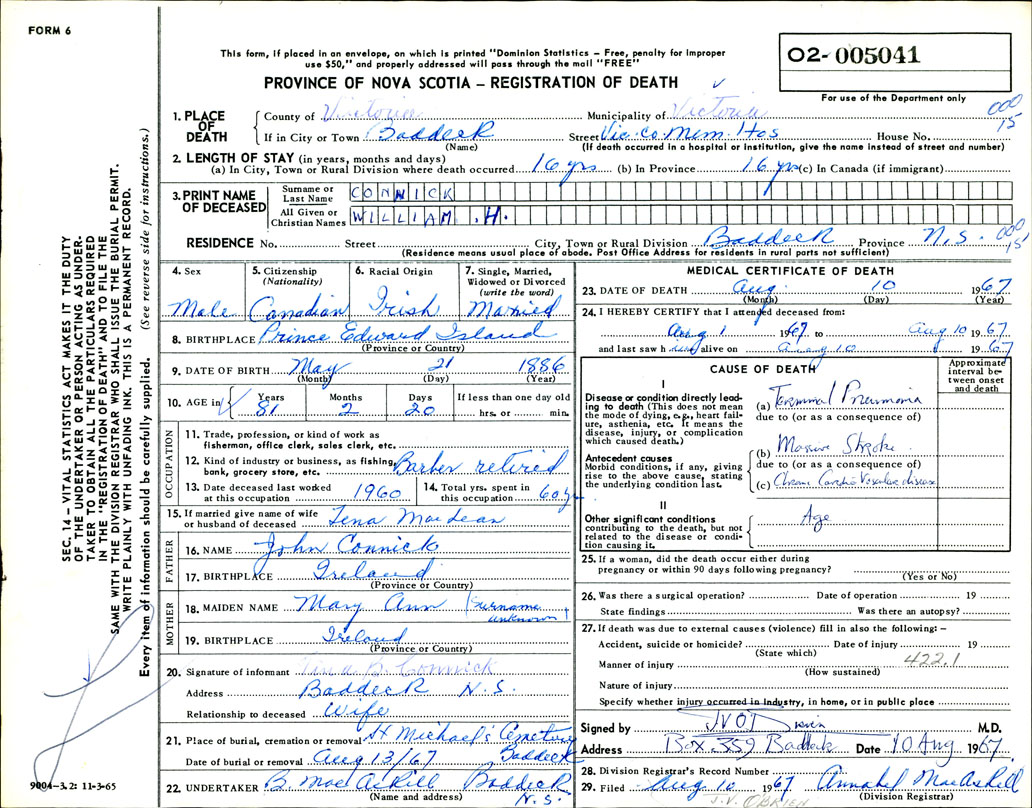 FORM 6
This form, if placed in an envelope, on which is printed "Dominion Statistics – Free, penalty for improper
use $50," and properly addressed will pass through the mail "FREE"
PROVINCE OF NOVA SCOTIA – REGISTRATION OF DEATH
02-005041
For use of the Department only
000
15
1. PLACE OF DEATH
County of Victoria Municipality of Victoria
If in City or Town Baddeck Street Vic. Co. Mem. Hos House No.
(Name) (If death occurred in a hospital or institution, give the name instead of street and number)
2. LENGTH OF STAY (in years, months and days)
(a) In City, Town or Rural Division where death occurred 16 yrs (b) In Province 16 yrs (c) In Canada (if immigrant)
3. PRINT NAME OF DECEASED
Surname or Last Name CONNICK
All Given or Christian Names WILLIAM .H.
RESIDENCE No. Street City, Town or Rural Division Baddeck Province N.S. 000 15
(Residence means usual place of abode. Post Office Address for residents in rural parts not sufficient)
4. Sex Male
5. Citizenship (Nationality) Canadian
6. Racial Origin Irish
7. Single, Married, Widowed or Divorced (write the word) Married
8. BIRTHPLACE Prince Edward Island
(Province or County)
9. DATE OF BIRTH May 21 1886
(Month) (Day) (Year)
10. AGE in Years 81 Months 2 Days 20 If less than one day old hrs. or min.
OCCUPATION
11. Trade, profession, or kind of work as
fisherman, office clerk, sales clerk, etc.
12. Kind of industry or business, as fishing, Barber retired
bank, grocery store, etc.
13. Date deceased last worked at this occupation 1960
14. Total yrs. spent in this occupation 60 yrs
15. If married give name of wife
or husband of deceased Tena MacLean
FATHER
16. NAME John Connick
17. BIRTHPLACE Ireland
(Province or Country)
MOTHER
18. MAIDEN NAME Mary Ann (surname unknown)
19. BIRTHPLACE Ireland
(Province or Country)
20. Signature of informant B. Connick
Address Baddeck N.S.
Relationship to deceased Wife
21. Place of burial, cremation or removal St Michael's Cemetery Baddeck
Date of burial or removal Aug 13/67
22. UNDERTAKER B. MacAskill Baddeck N.S.
(Name and address)
MEDICAL CERTIFICATE OF DEATH
23. DATE OF DEATH Aug. 10 1967
(Month) (Day) (Year)
24. I HEREBY CERTIFY that I attended deceased from:
Aug 1 1967 to Aug 10 1967
and last saw him alive on 10 1967
CAUSE OF DEATH
Approximate interval between onset and death
I
Disease or condition directly leading to death (This does not mean the mode of dying, e.g., heart failure, asthenia, etc. It means the disease, injury, or complication which caused death.)
(a) Terminal Pneumonia
due to (or as a consequence of)
Antecedent causes
Morbid conditions, if any, giving rise to the above cause, stating the underlying condition last.
(b) Massive Stroke
due to (or as a consequence of)
(c) Chronic Cardio Vascular disease
II
Other significant conditions
contributing to the death, but not related to the disease or condition causing it. Age
25. If a woman, did the death occur either during
pregnancy or within 90 days following pregnancy?
(Yes or No)
26. Was there a surgical operation? Date of operation 19
State findings Was there an autopsy?
27. If death was due to external causes (violence) fill in also the following: –
Accident, suicide or homicide? Date of injury 19
(State which)
422.1
Manner of injury
(How sustained)
Nature of injury
Specify whether injury occurred in industry, in home, or in public place
Signed by M.D.
Address Box 359 Baddeck Date 10 Aug 1967
28. Division Registrar's Record Number
29. Filed Aug 10 1967 Annabel MacAskill
J.V. O'BRIEN (Division Registrar)
SEC. 14 – VITAL STATISTICS ACT MAKES IT THE DUTY
OF THE UNDERTAKER OR PERSON ACTING AS UNDER-
TAKER TO OBTAIN ALL THE PARTICULARS REQUIRED
IN THE "REGISTRATION OF DEATH" AND TO FILE THE
SAME WITH THE DIVISION REGISTRAR WHO SHALL ISSUE THE BURIAL PERMIT.
WRITE PLAINLY WITH UNFADING INK. THIS IS A PERMANENT RECORD.
Every item of information should be carefully supplied. (See reverse side for instructions.)
9004-3.2: 11-3-65